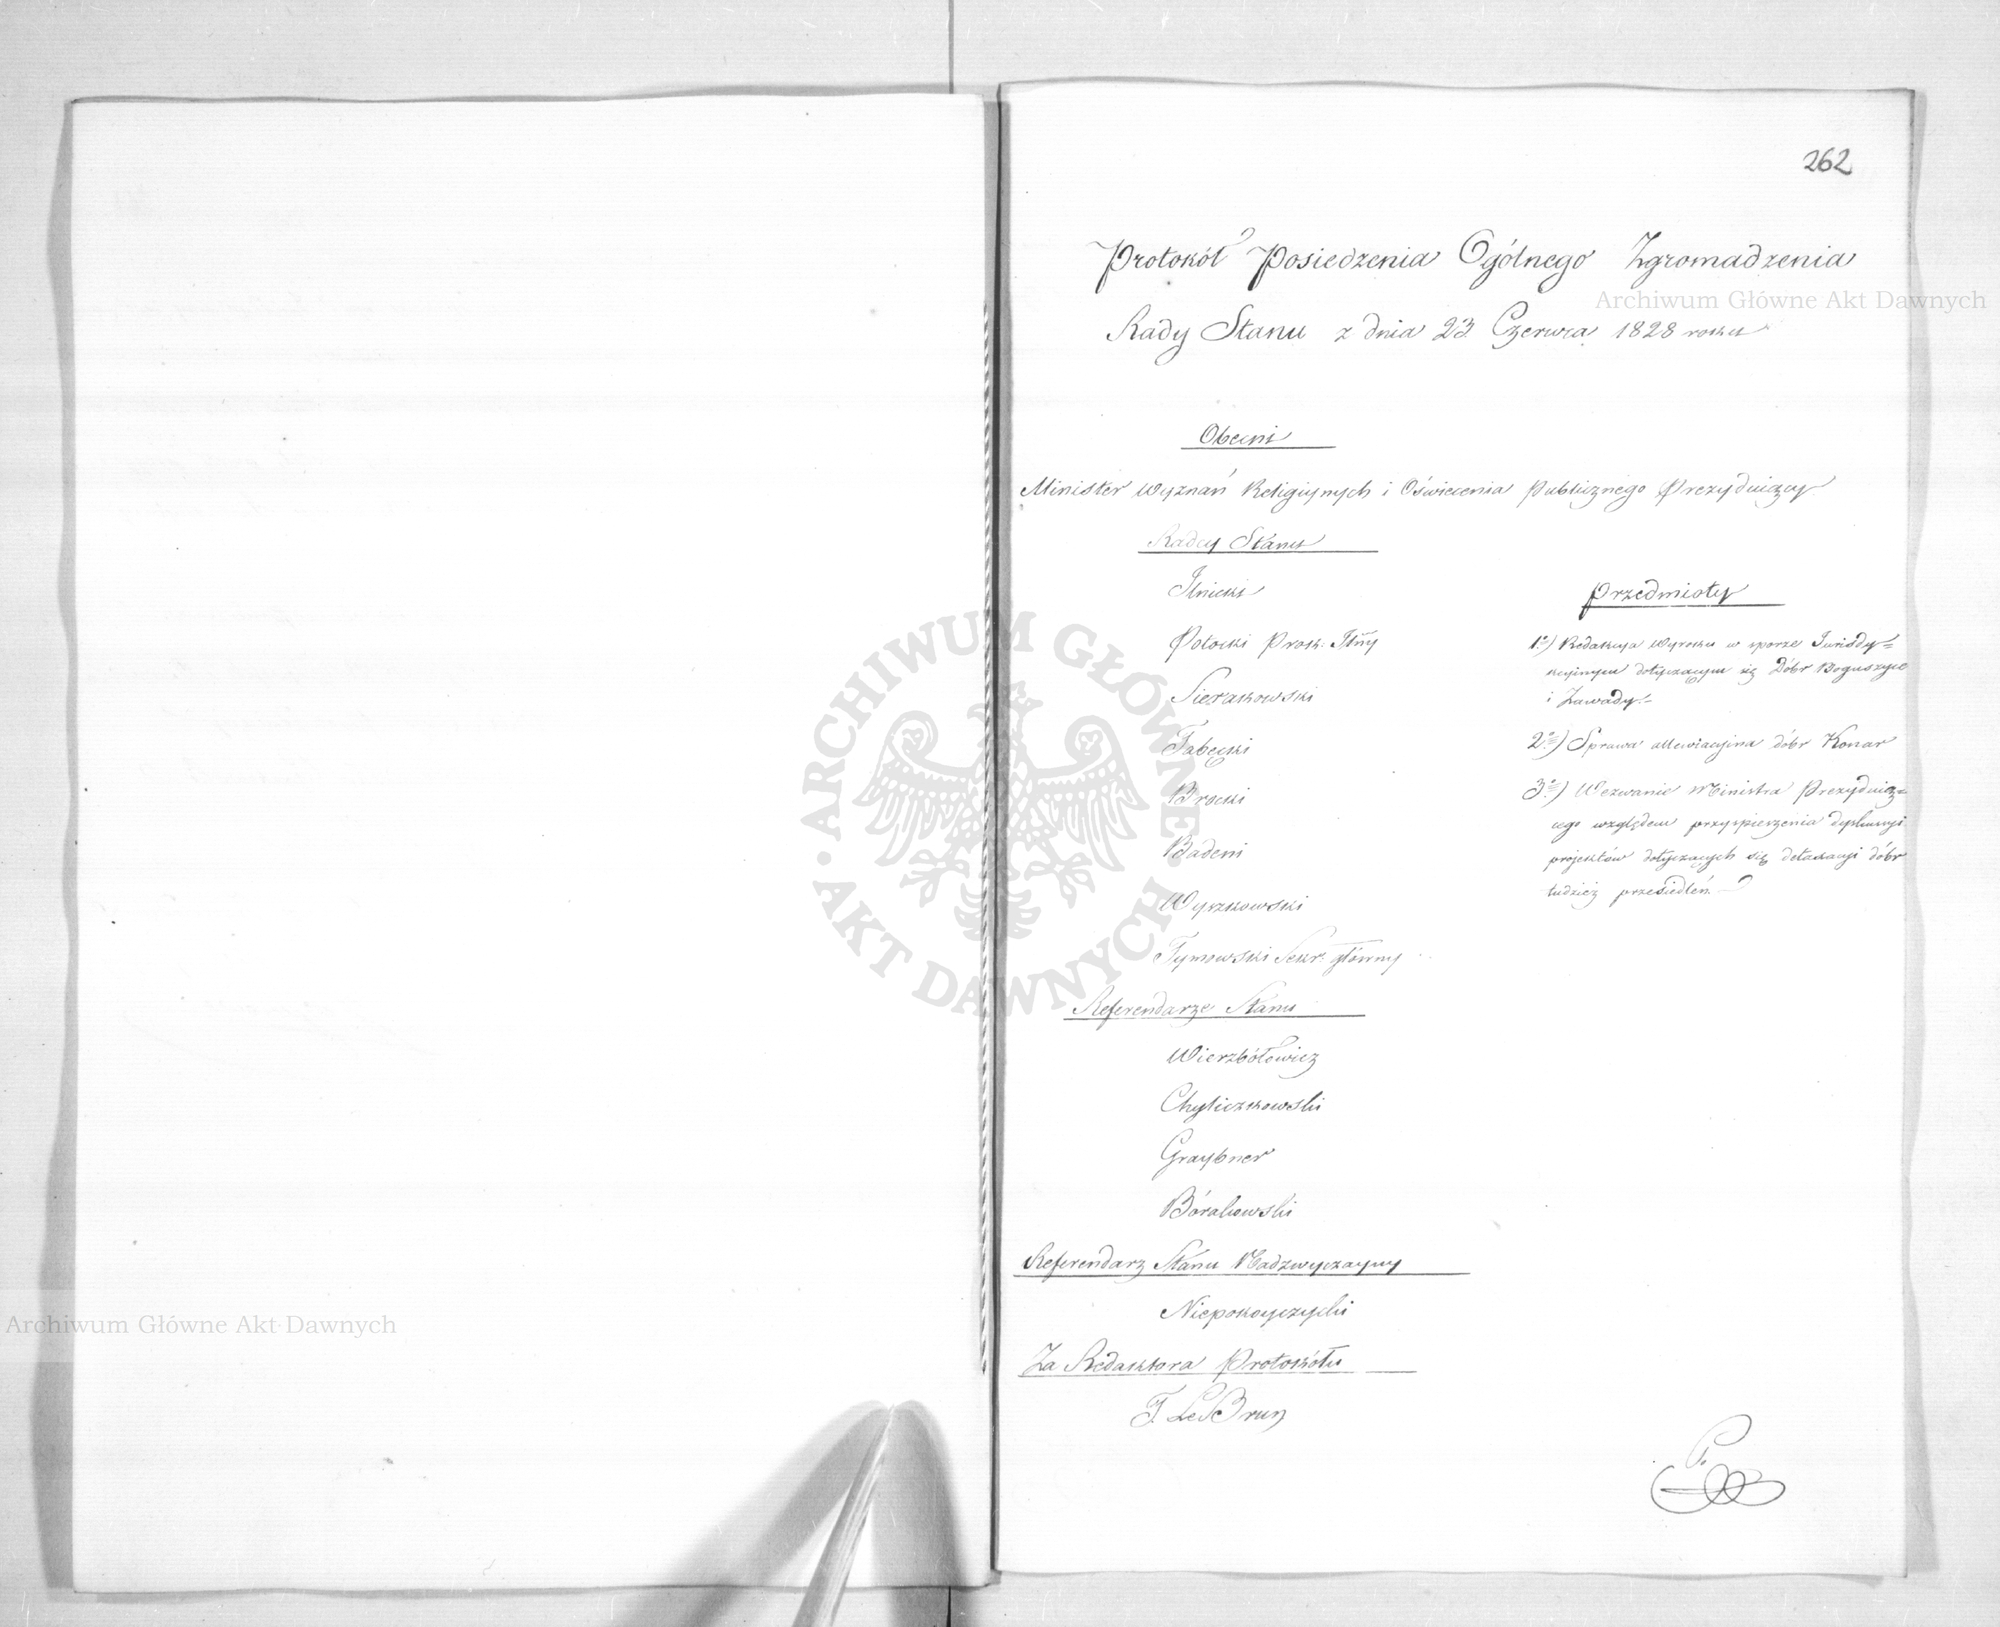 262
Protokół Posiedzenia Ogólnego Zgromadzenia
Rady Stanu z dnia 23 Czerwca 1828 roku
Obecni
Minister Wyznań Religiynych i Oświecenia Publicznego Prezyduiący
Radcy Stanu
Ilnicki
Potocki Prok:
Sierakowski
Tabęcki
Brocki
Badeni
Wyszkowski
Tymowski Sekr. główny
Referendarze Stanu
Wierzbółowicz
Chyliczkowski
Graybner
Bórakowski
Referendarz Stanu Nadzwyczayny
Niepokoyczycki
Za Redaktora Protokółu
J. LeBrun
Przedmioty
1o) Redakcya Wyroku w sporze Jurisdy=
kcyinym dotyczącym się Dóbr Boguszyce
i Zawady.
2o) Sprawa allewiacyina dóbr Konar
3o) Wezwanie Ministra Prezyduią=
cego względem przyspieszenia
projektów dotyczących się detaxacyi dóbr
tudzież przesiedleń.
Archiwum Główne Akt Dawnych
Archiwum Główne Akt Dawnych
ARCHIWUM GŁÓWNE AKT DAWNYCH